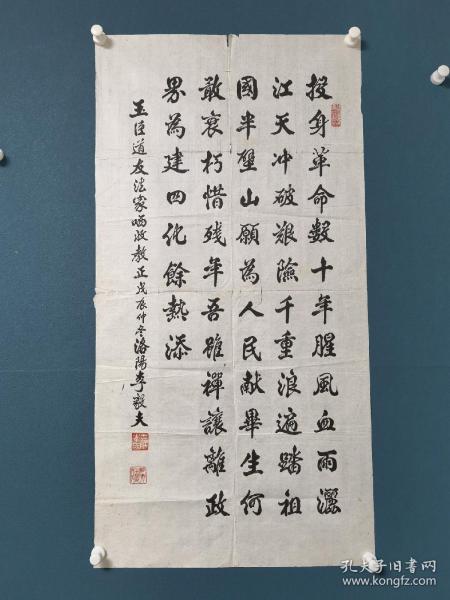 投身革命数十年腥风血雨灑
江天冲破艰險千重浪遍踏祖
國半壁山願為人民献畢生何
敢衰朽惜残年吾雖禪讓離政
界為建四化餘熱添
王臣道友法家哂政教正戊辰仲冬洛陽李毅夫
孔夫子旧书网
www.kongfz.com